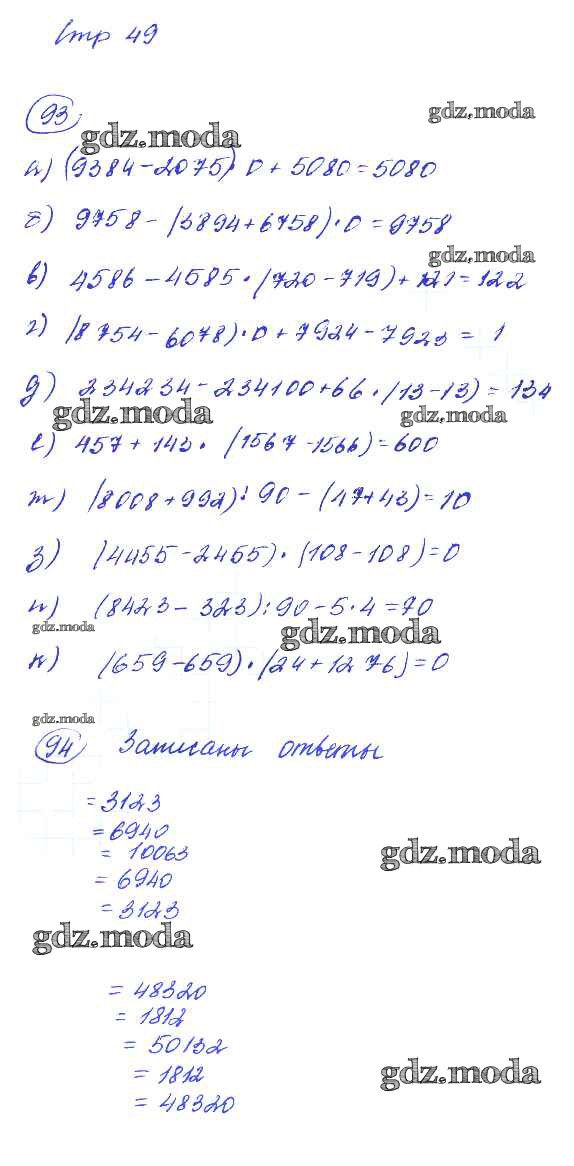 Стр 49
93
gdz.moda
gdz.moda
а) (9384-2075)·0+5080=5080
б) 9758-(3894+6758)·0=9758
gdz.moda
в) 4586-4585·(720-719)+121=122
г) (8754-6078)·0+7924-7923=1
д) 234234-234100+66·(13-13)=134
gdz.moda
gdz.moda
е) 457+143·(1567-1566)=600
ж) (8008+992):90-(47+43)=10
з) (4455-2465)·(108-108)=0
и) (8423-323):90-5·4=70
gdz.moda
gdz.moda
к) (659-659)·(24+1276)=0
gdz.moda
94 Записаны ответы
=3123
=6940
=10063
gdz.moda
=6940
=3123
gdz.moda
=48320
=1812
=50132
=1812
gdz.moda
=48320